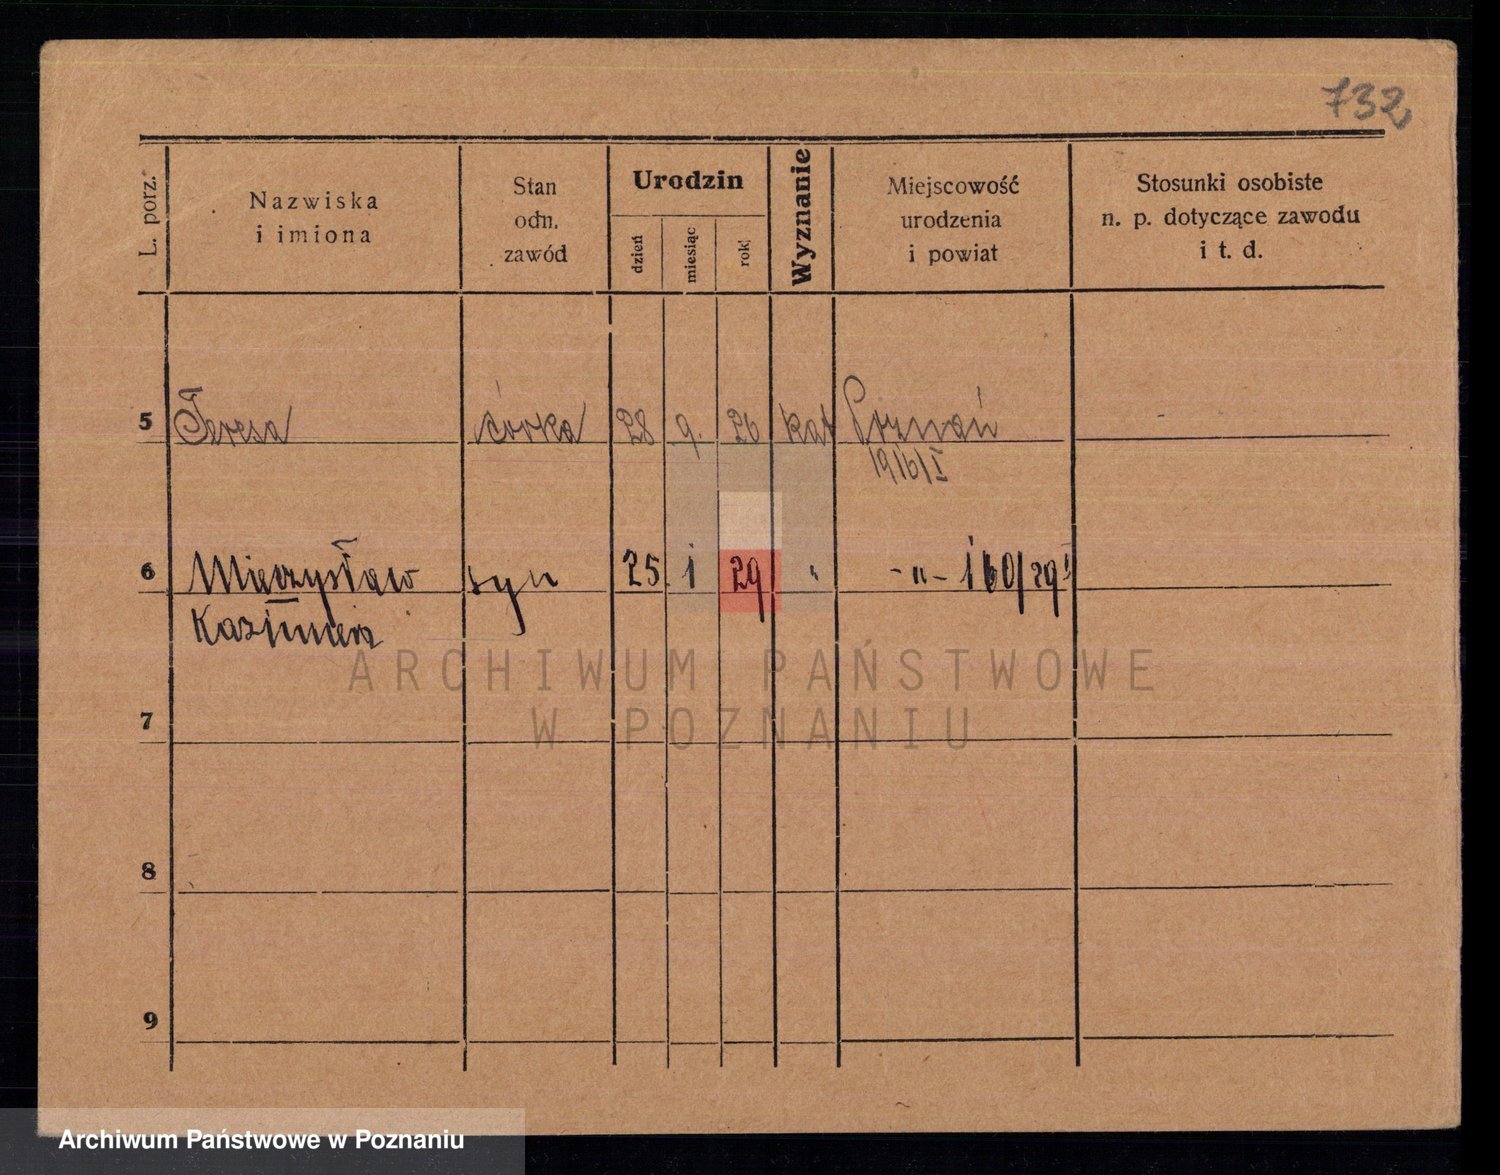 732
L. porz.
Nazwiska
i imiona
Stan
odn.
zawód
Urodzin
dzień
miesiąc
rok
Wyznanie
Miejscowość
urodzenia
i powiat
Stosunki osobiste
n. p. dotyczące zawodu
i t. d.
5 Teresa córka 28 9. 26 kat Poznań
1916/I
6 Mieczysław syn 25. 1 29 " -"- 160/29 I
Kazimierz
ARCHIWUM PAŃSTWOWE
W POZNANIU
7
8
9
Archiwum Państwowe w Poznaniu